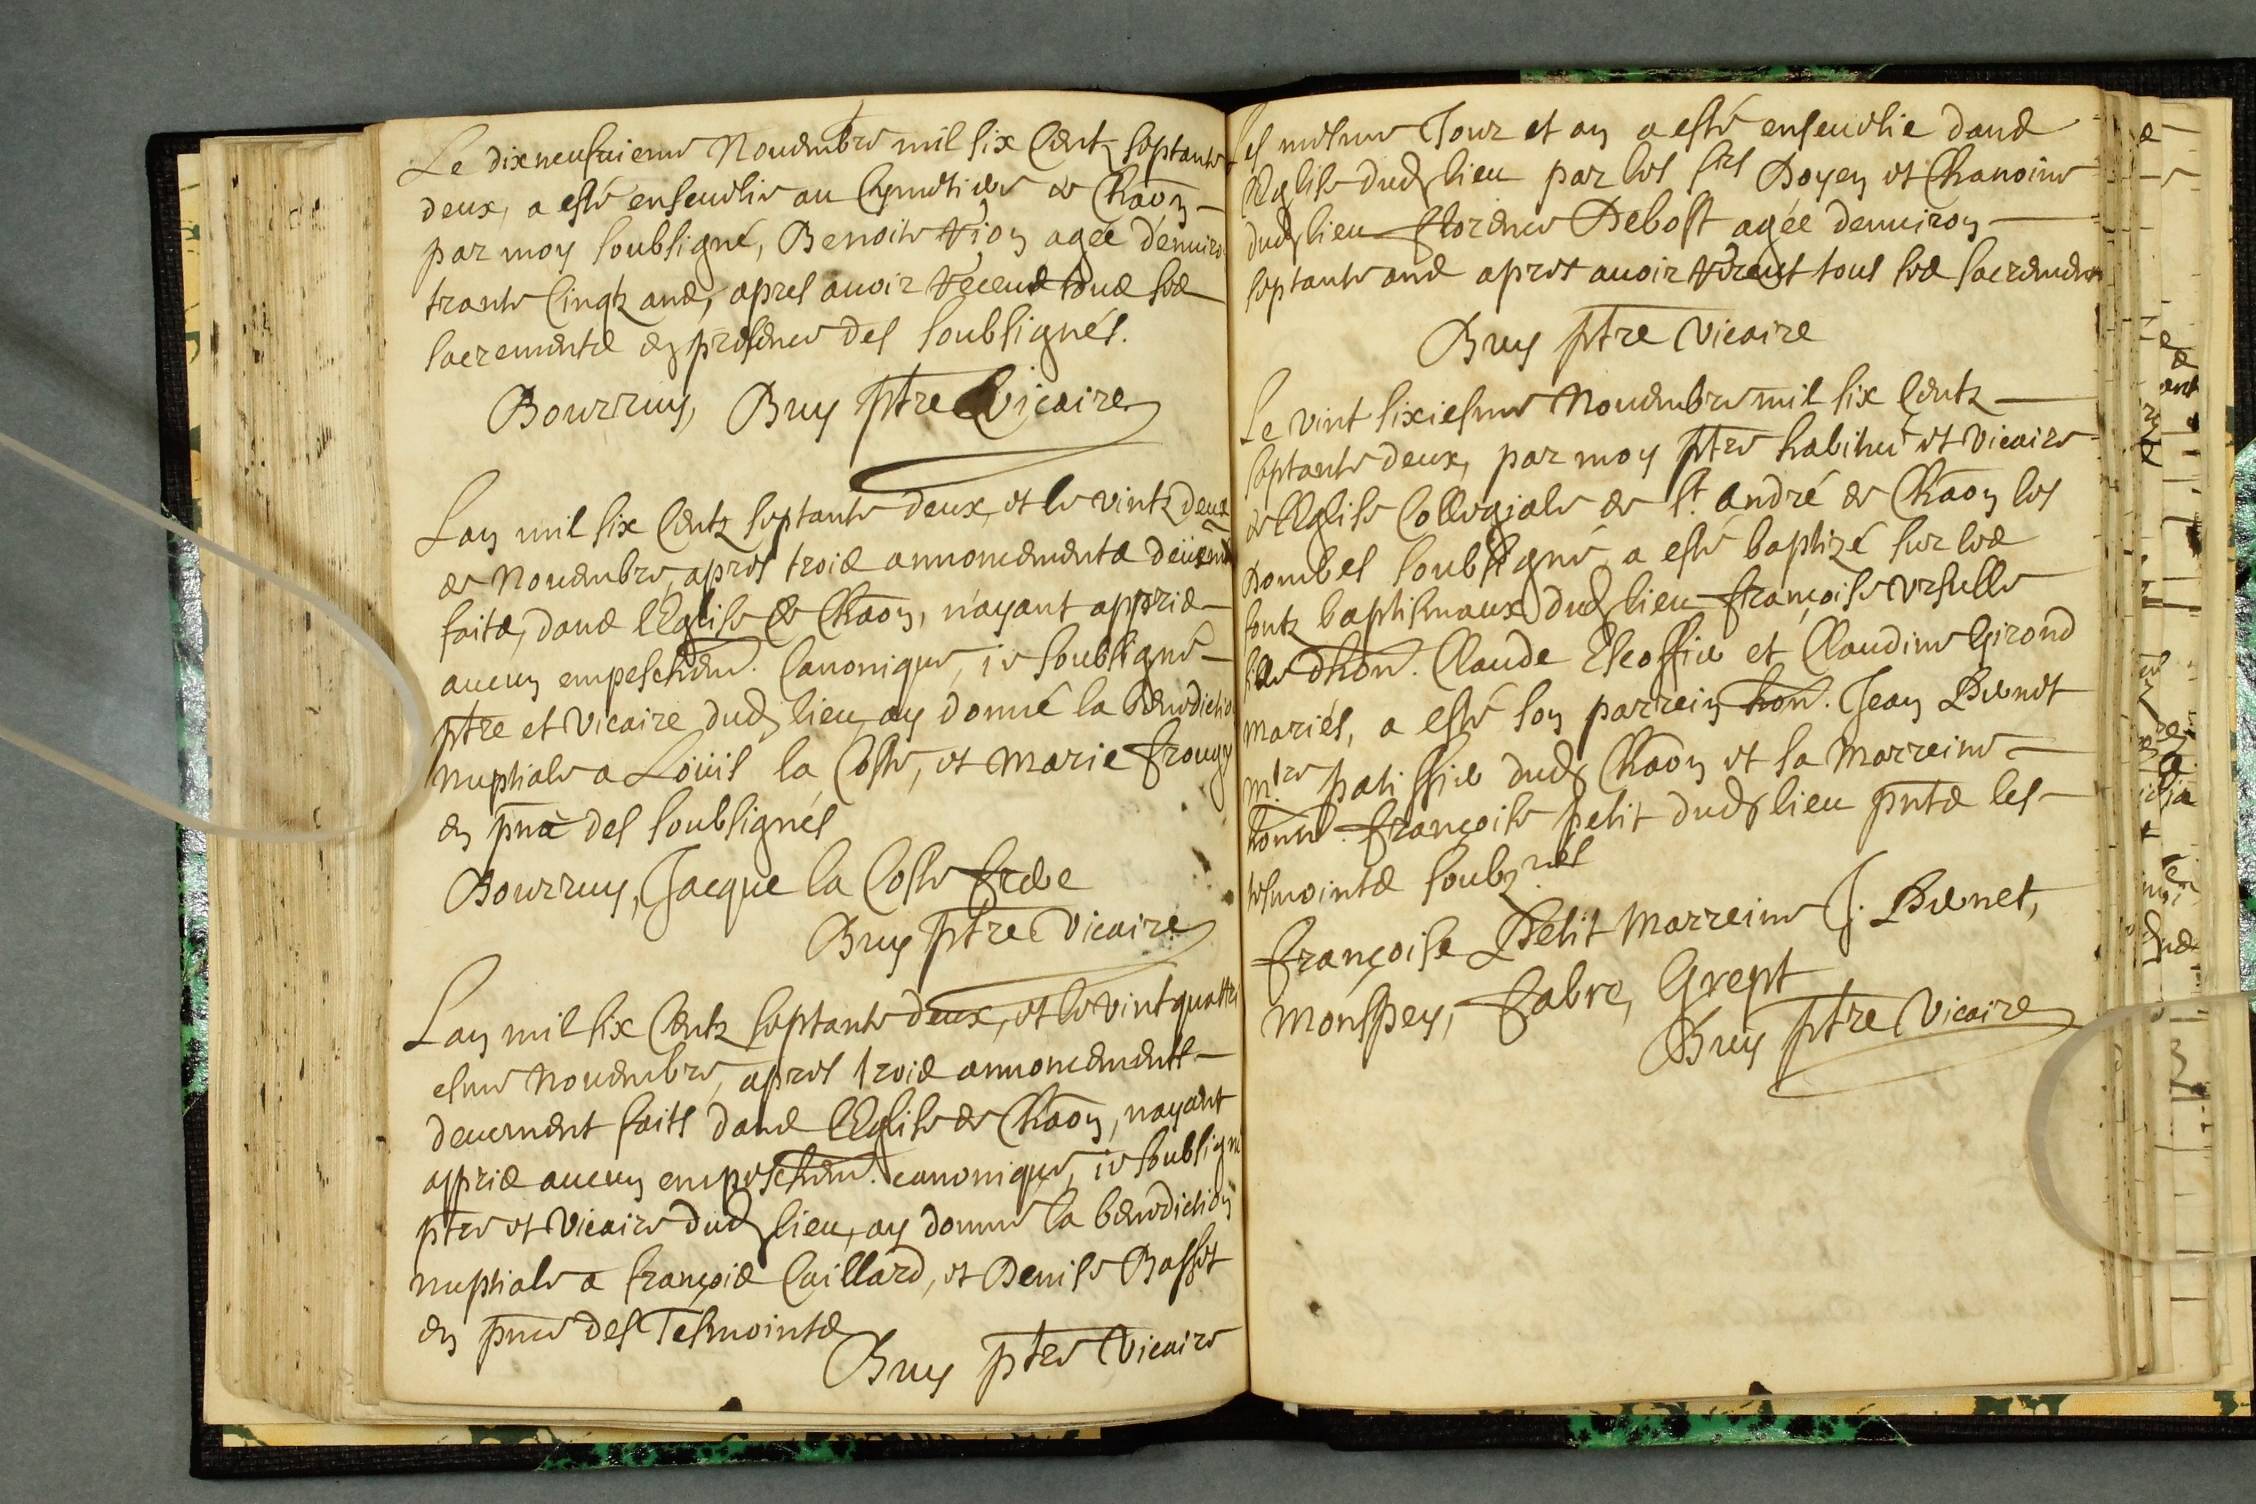 Le dixneufuieme Nouembre mil six Centz septante
deux, a esté enseuelie au Cymetiere de Chaōn
par moy soubsigné, Benoite agée d'enuiron
trante Cinqtz ans, apres auoir receus tous ses
sacrements en presence des soubsignés.
Bourruy, Bruy ptre Vicaire
Lan mil six Centz septante deux, et le vintz deux
de Nouembre, apres trois annoncements deüem̄t
faits, dans lEglise de Chaōn, n'ayant appris
aucun empeschem̄. Canonique, ie soubsigné
ptre et Vicaire dud lieu, ay donné la benediction
nuptiale a Loüis la Coste, et Marie frougy
en pn̄ce des soubsignés
Bourruy, Jacque la Coste frere
Bruy ptre Vicaire
Lan mil six Centz septante deux, et le vint quattri
esme Nouembre, apres trois annoncements
deuement faits dans lEglise de Chaōn, nayant
appris aucun empeschem̄. canonique, ie soubsigné
ptre et Vicaire dud lieu, ay donné la benediction
nuptiale a françois Caillard, et Denise Basset
en pn̄ce des Tesmointz
Bruy ptre Vicaire
Les mesme Jour et an a esté enseuelie dans
lEglise dud lieu par les srs Doyen et Chanoine
dud lieu florence Debost agée denuiron
septante ans apres auoir receut tous ses sacrements
Bruy ptre Vicaire
Le vint sixiesme Nouembre mil six Centz
septante deux, par moy ptre habitué et Vicaire
de lEglise Collegiale de st. andré de Chaōn les
Dombes soubsigné, a esté baptizé sur les
fontz baptismaux dud lieu françoise Vrsulle
fille dhon. Claude Escoffie et Claudine Girond
mariés, a esté son parrein hon. Jean Bernet
m.tre patissie dud Chaōn et sa Marreine
honn. françoise petit dud lieu pn̄ts les
tesmointz soubznés
françoise Petit Marreine J. Bernet,
Monspey, Fabre, Grept
Bruy ptre Vicaire